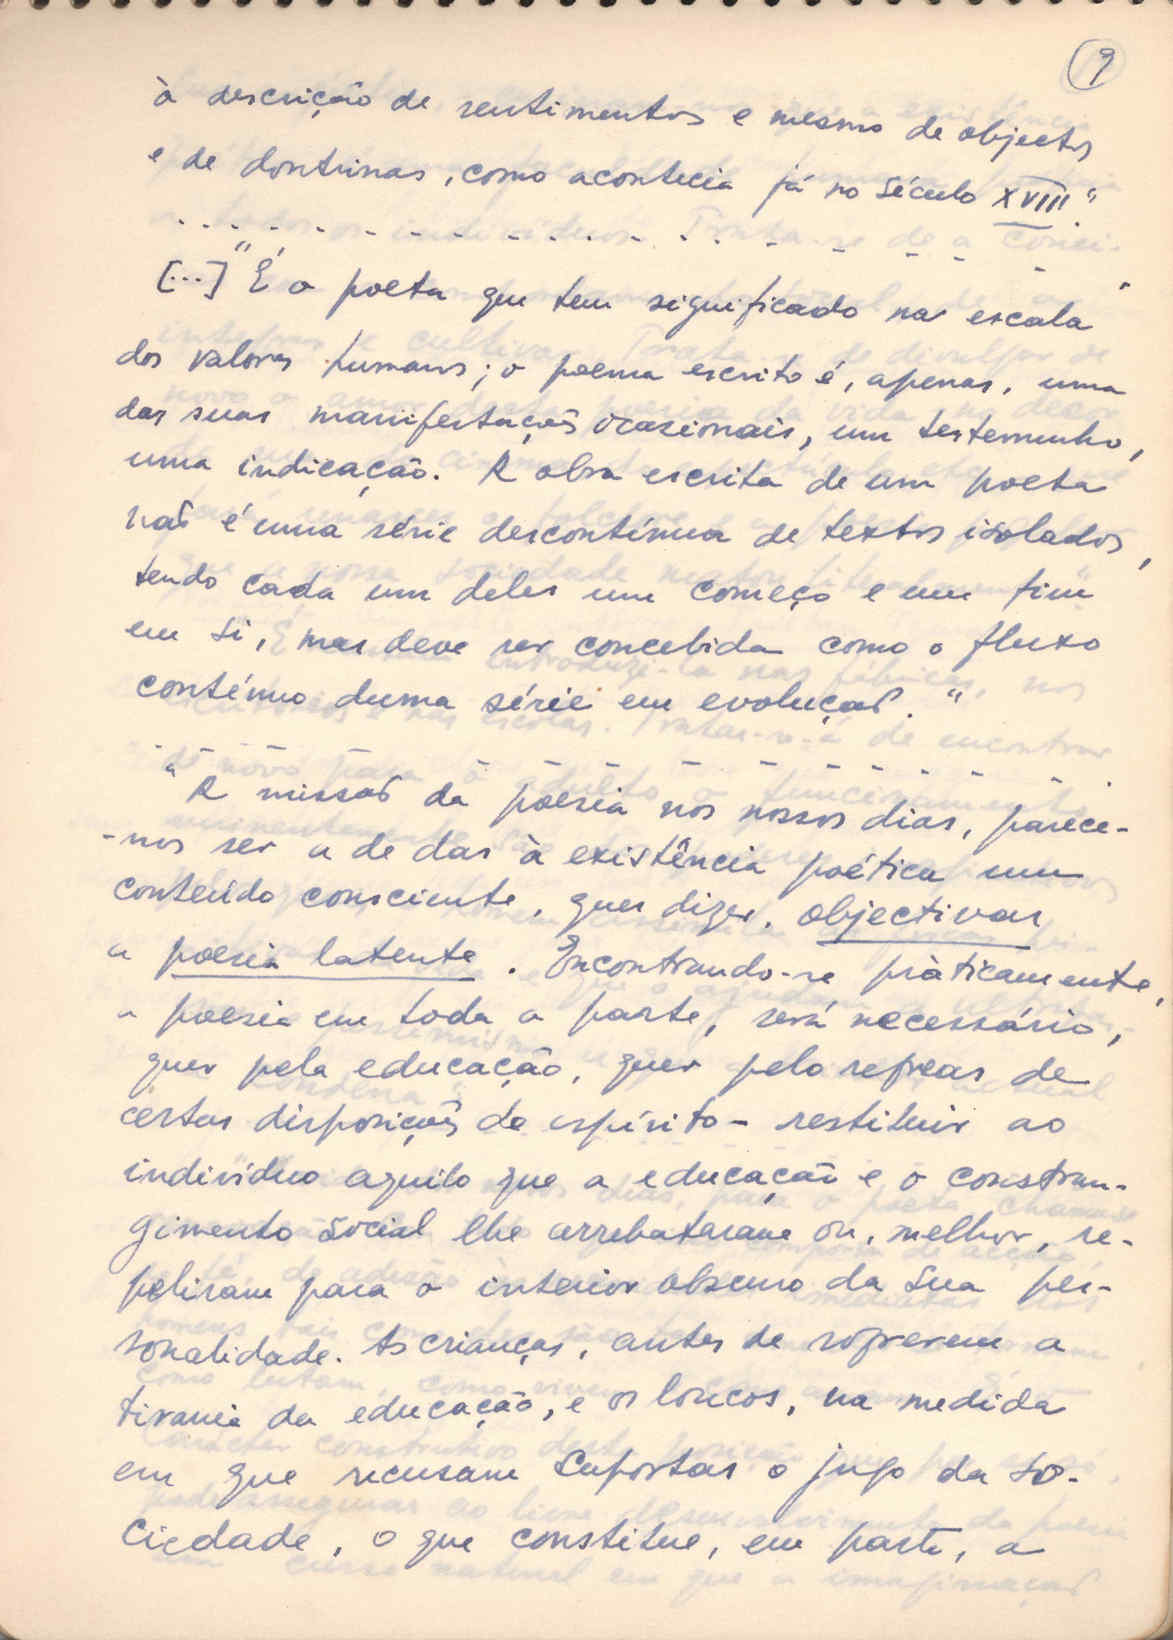 9
à descrição de sentimentos e mesmo de objectos
e de doutrinas, como acontecia já no século XVIII."
. . . . . . . . . . . . . . . . . . . .
[...] "É o poeta que tem significado na escala
dos valores humanos; o poema escrito é, apenas, uma
das suas manifestações ocasionais, um testemunho,
uma indicação. A obra escrita de um poeta
não é uma série descontínua de textos isolados,
tendo cada um deles um começo e um fim
em si, mas deve ser concebida como o fluxo
contínuo duma série em evolução."
- - - - - - - - - - - - - -
"A missão da poesia nos nossos dias, parece-
-nos ser a de dar à existência poética um
conteúdo consciente, quer dizer, objectivar
a poesia latente. Encontrando-se pràticamente,
a poesia em toda a parte, será necessário,
quer pela educação, quer pelo refrear de
certas disposições de espírito - restituir ao
indivíduo aquilo que a educação e o constran-
gimento social lhe arrebataram ou, melhor, re-
peliram para o interior obscuro da sua per-
sonalidade. As crianças, antes de sofrerem a
tirania da educação, e os loucos, na medida
em que recusam suportar o jugo da so-
ciedade, o que constitue, em parte, a